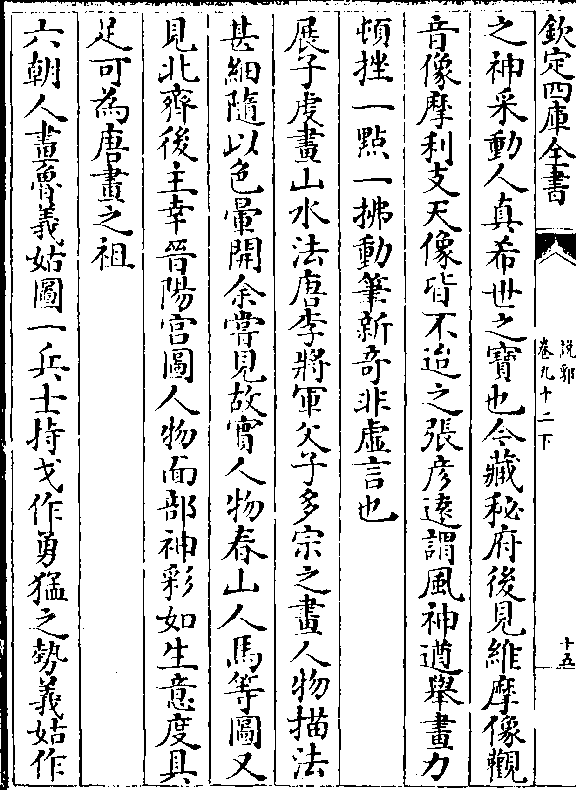 欽定四庫全書
說郛
卷九十二下
十五
之神采動人真希世之寶也今藏秘府後見維摩像觀
音像摩利支天像皆不迨之張彥遠謂風神遒舉畫力
頓挫一點一拂動筆新奇非虛言也
展子䖍畫山水法唐李將軍父子多宗之畫人物描法
甚細隨以色暈開余嘗見故實人物春山人馬等圖又
見北齊後主幸晉陽宫圖人物面部神彩如生意度具
足可為唐畫之祖
六朝人畫魯義姑圖一兵士持戈作勇猛之勢義姑作